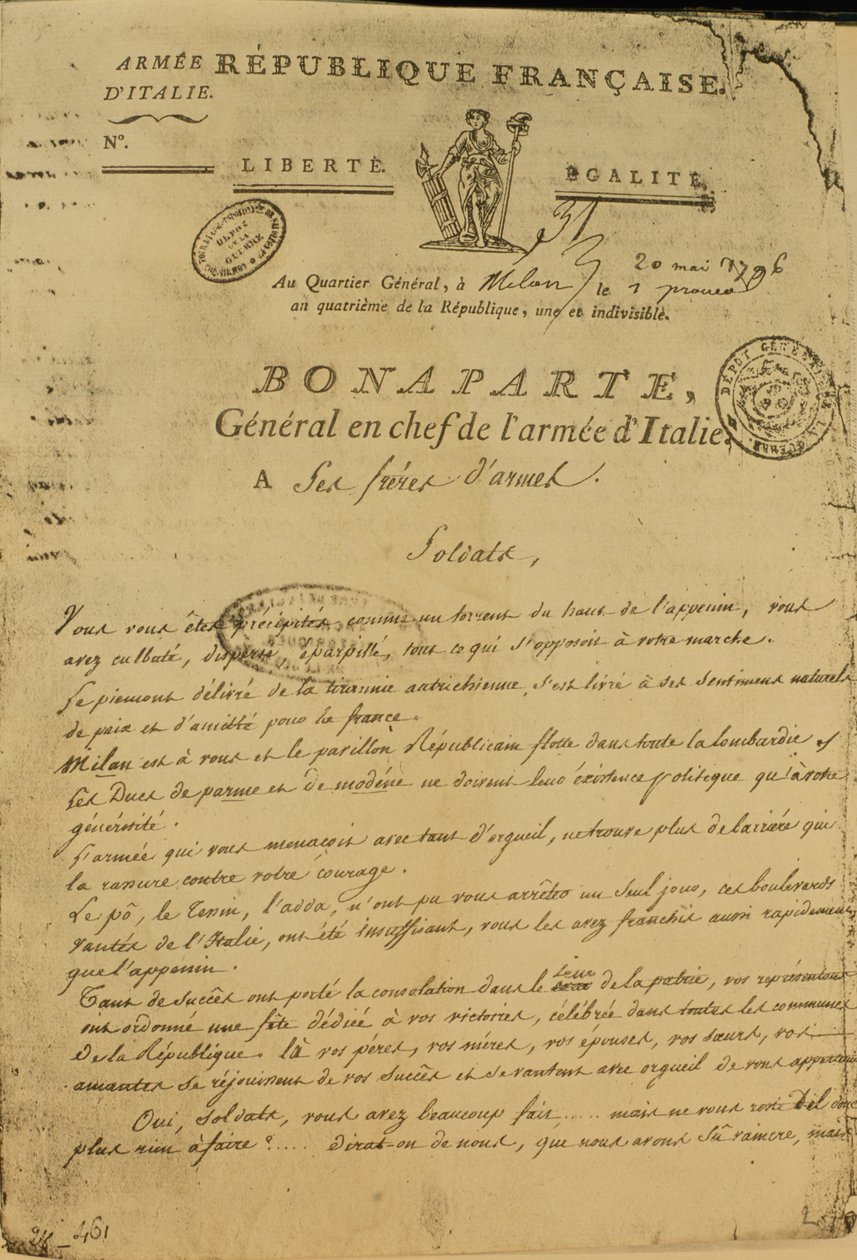 ARMÉE
D'ITALIE.
RÉPUBLIQUE FRANÇAISE.
Nº.
LIBERTÉ.
EGALITÉ.
31
20 mai 1796
Au Quartier Général, à Milan le 1
an quatrième de la République, une et indivisible.
DÉPÔT GÉNÉRAL DE LA GUERRE
DÉPOT DE LA GUERRE
BONAPARTE,
Général en chef de l'armée d'Italie.
A Ses fréres d'armes.
Soldats,
Vous vous êtes précipités, comme un torrent du haut de l'appenin, vous
avez culbuté, dispersé, éparpillé, tout ce qui s'opposoit à votre marche.
Le piemont délivré de la tirannie autrichienne, s'est livré à ses sentimens naturels
de paix et d'amitié pour la france.
Milan est à vous et le pavillon Républicain flotte dans toute la lombardie,
Les Ducs de parme et de modéne ne doivent leur éxistence politique qu'à votre
générosité.
L'armée qui vous menaçoit avec tant d'orgueil, ne trouve plus de barriére qui
la rassure contre votre courage.
Le pô, le Tesin, l'adda, n'ont pu vous arrêter un seul jour, ces boulevards
vantés de l'Italie, ont été insuffisant, vous les avez franchis aussi rapidement
que l'appenin.
Tant de succês ont porté la consolation dans le sein de la patrie, vos représentans
ont ordonné une fête dédiée à vos victoires, célébrée dans toutes les communes
de la République. là vos péres, vos méres, vos épouses, vos sœurs, vos
amantes se réjouissent de vos succês et se vantent avec orgueil de vous appartenir
Oui, soldats, vous avez beaucoup fait, ..... mais ne vous reste t'il donc
plus rien à faire ? .... dirat-on de nous, que nous avons sû vaincre, mais
461